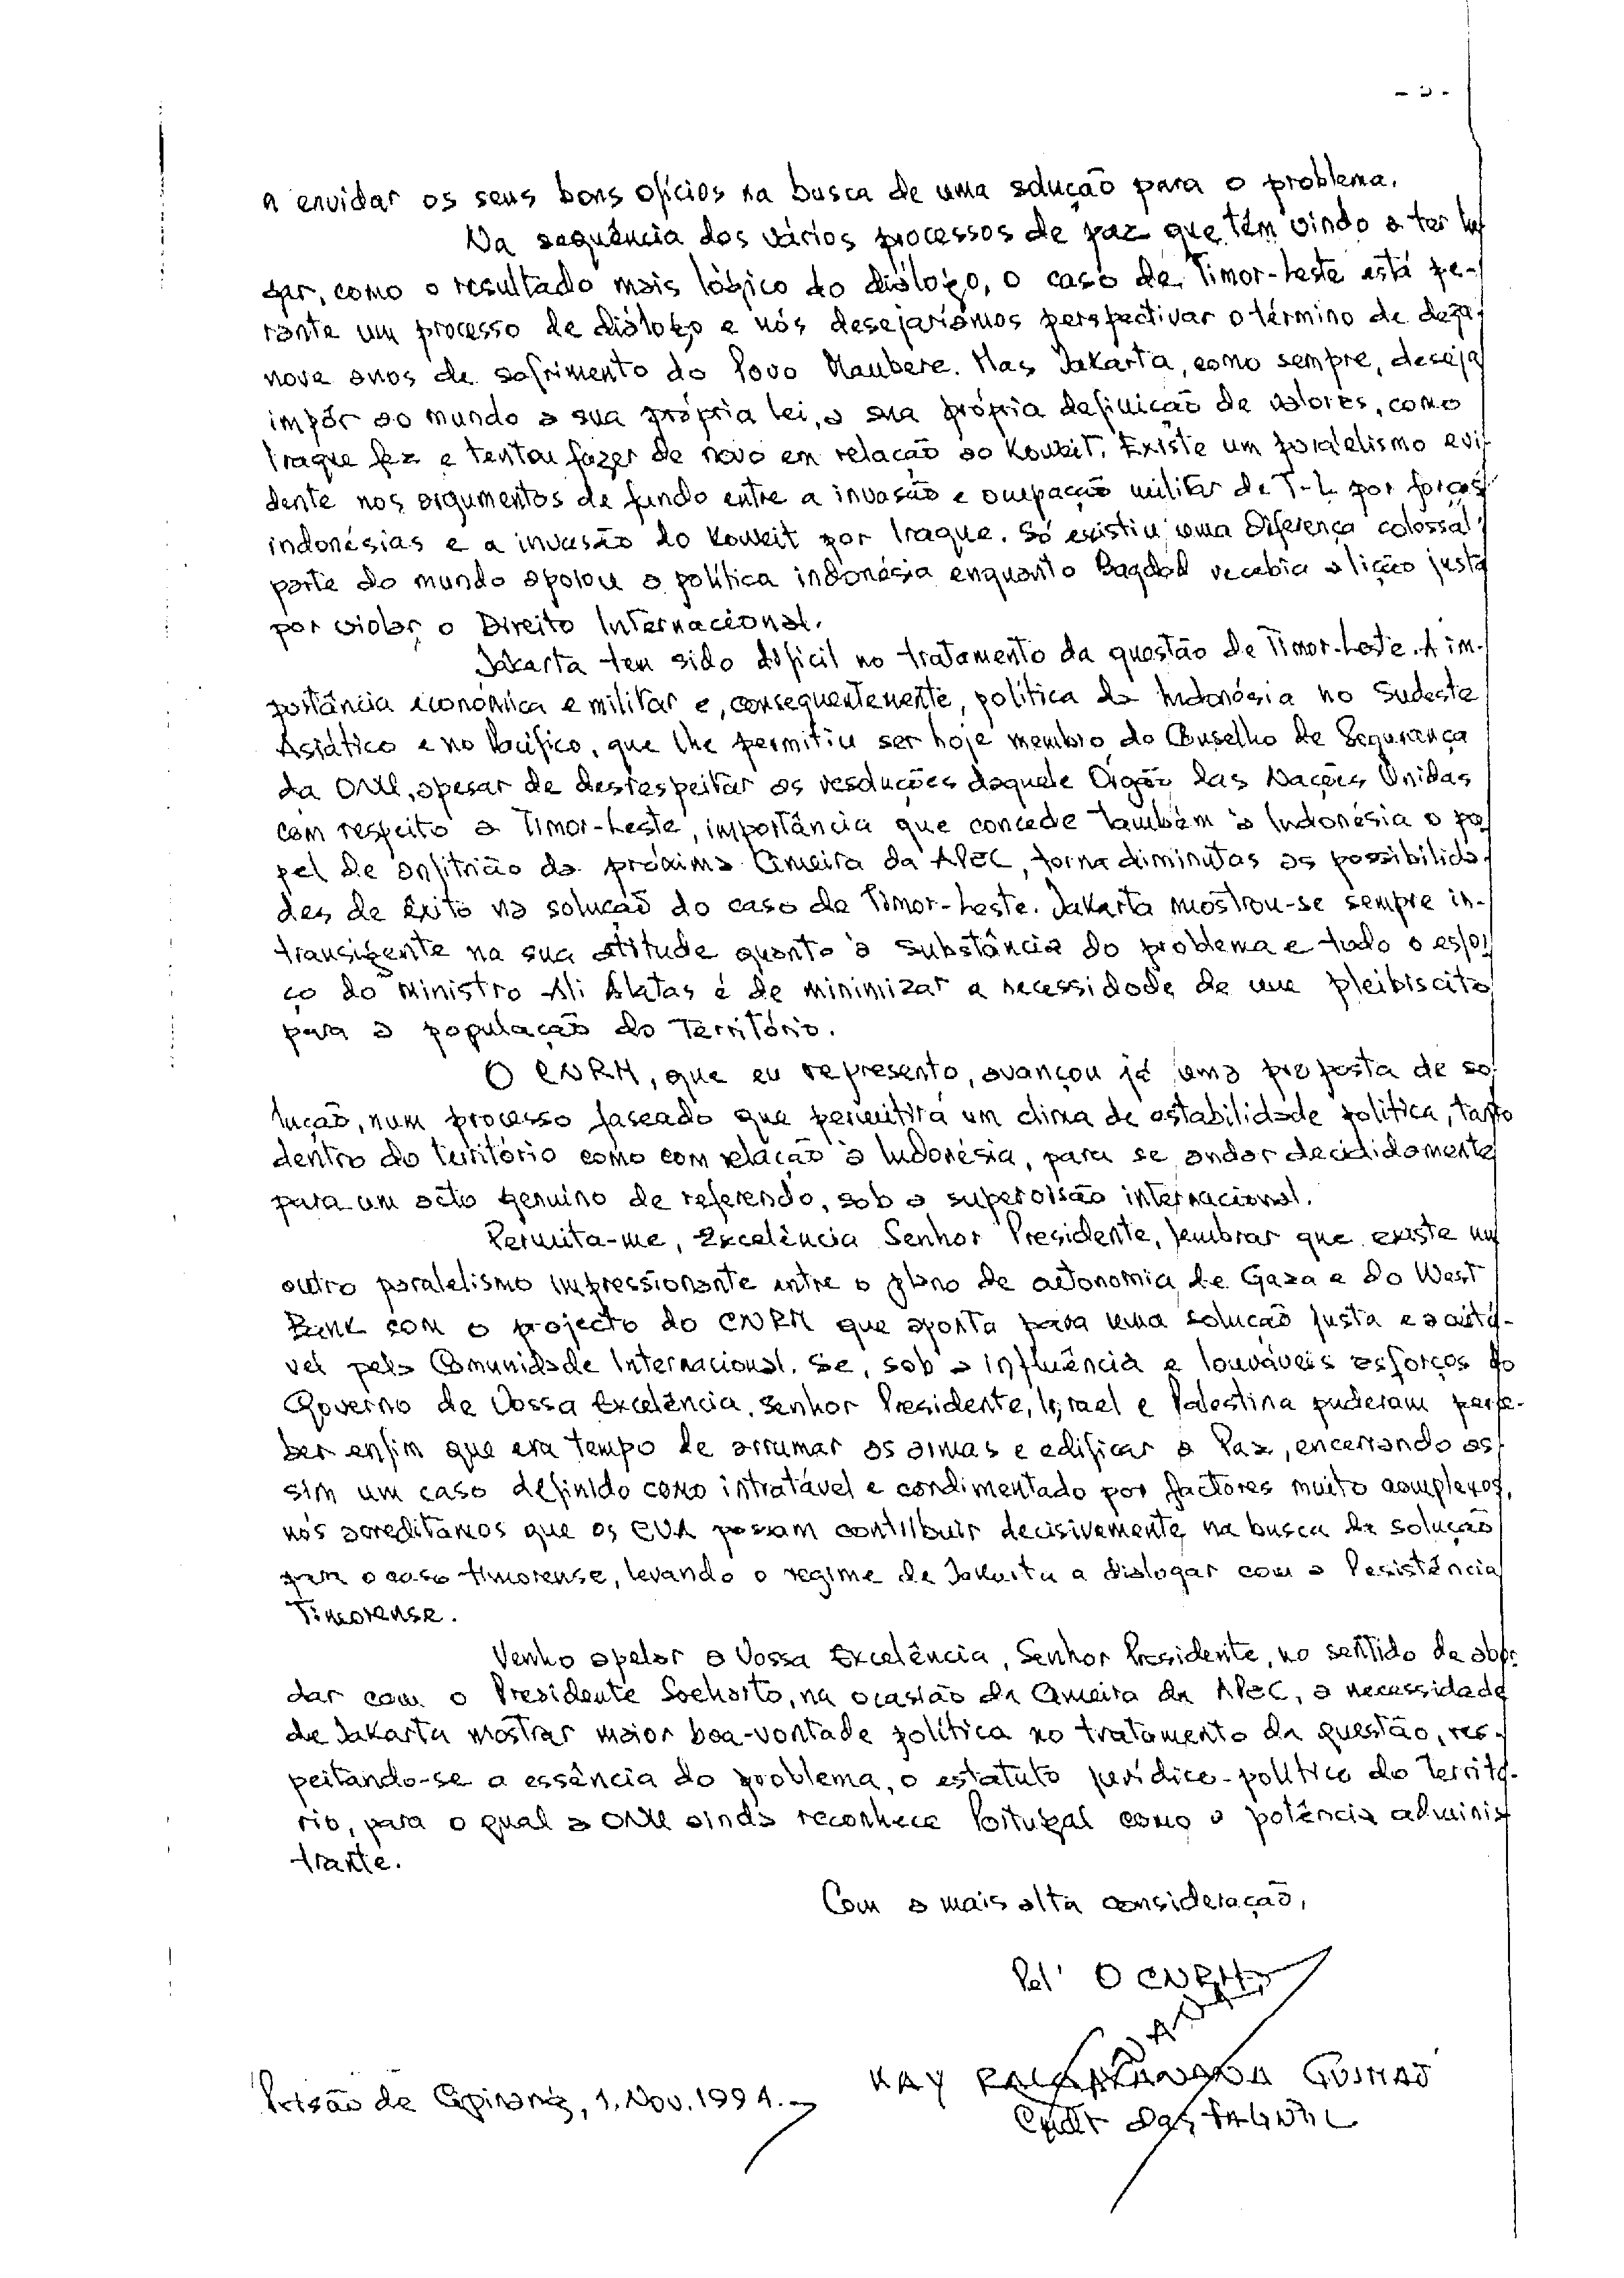 a envidar os seus bons ofícios na busca de uma solução para o problema.
Na sequência dos vários processos de paz que têm vindo a ter lu
gar, como o resultado mais lógico do diálogo, o caso de Timor-Leste está pe-
rante um processo de diálogo e nós desejaríamos perspectivar o término de deza
nove anos de sofrimento do Povo Maubere. Mas Jakarta, como sempre, deseja
impôr ao mundo a sua própria lei, a sua própria definição de valores, como
Iraque fez e tentou fazer de novo em relação ao Koweit. Existe um paralelismo evi-
dente nos argumentos de fundo entre a invasão e ocupação militar de T-L por forças
indonésias e a invasão do Koweit por Iraque. Só existiu uma diferença colossal:
parte do mundo apoiou a política indonésia enquanto Bagdad recebia a lição justa
por violar o Direito Internacional.
Jakarta tem sido difícil no tratamento da questão de Timor-Leste. A im-
portância económica e militar e, consequentemente, política da Indonésia no Sudeste
Asiático e no Pacífico, que lhe permitiu ser hoje membro do Conselho de Segurança
da ONU, apesar de desrespeitar as resoluções daquele Órgão das Nações Unidas
com respeito a Timor-Leste, importância que concede também à Indonésia o pa
pel de anfitrião da próxima Cimeira da APEC, torna diminutas as possibilida-
des de êxito na solução do caso de Timor-Leste. Jakarta mostrou-se sempre in-
transigente na sua atitude quanto à substância do problema e todo o esfor
ço do ministro Ali Alatas é de minimizar a necessidade de um pleibiscito
para a população do Território.
O CNRM, que eu represento, avançou já uma proposta de so
lução, num processo faseado que permitirá um clima de estabilidade política, tanto
dentro do território como com relação à Indonésia, para se andar decididamente
para um acto genuíno de referendo, sob a supervisão internacional.
Permita-me, Excelência Senhor Presidente, lembrar que existe um
outro paralelismo impressionante entre o plano de autonomia de Gaza e do West
Bank com o projecto do CNRM que aponta para uma solução justa e aceitá-
vel pela Comunidade Internacional. Se, sob a influência e louváveis esforços do
Governo de Vossa Excelência, Senhor Presidente, Israel e Palestina puderam perce-
ber enfim que era tempo de arrumar as armas e edificar a Paz, encerrando as
sim um caso definido como intratável e condimentado por factores muito complexos,
nós acreditamos que os EUA possam contribuir decisivamente na busca da solução
para o caso timorense, levando o regime de Jakarta a dialogar com a Resistência
Timorense.
Venho apelar a Vossa Excelência, Senhor Presidente, no sentido de abor
dar com o Presidente Soeharto, na ocasião da Cimeira da APEC, a necessidade
de Jakarta mostrar maior boa-vontade política no tratamento da questão, res-
peitando-se a essência do problema, o estatuto jurídico-político do Territó-
rio, para o qual a ONU ainda reconhece Portugal como a potência adminis
trante.
Com a mais alta consideração,
Pel' O CNRM,
KAY RALA XANANA GUSMÃO
Cmdt das FALINTIL
Prisão de Cipinang, 1. Nov. 1994.